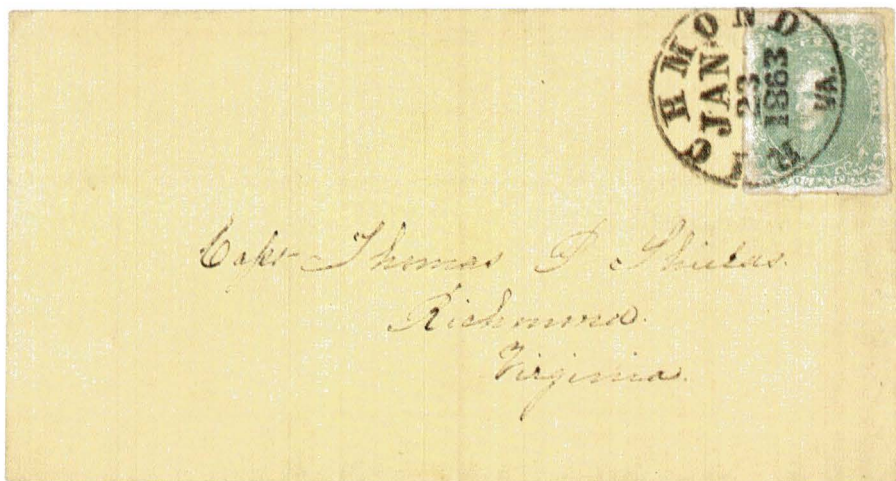 RICHMOND
JAN
23
1863
VA.
Capt Thomas P Shields.
Richmond.
Virginia.